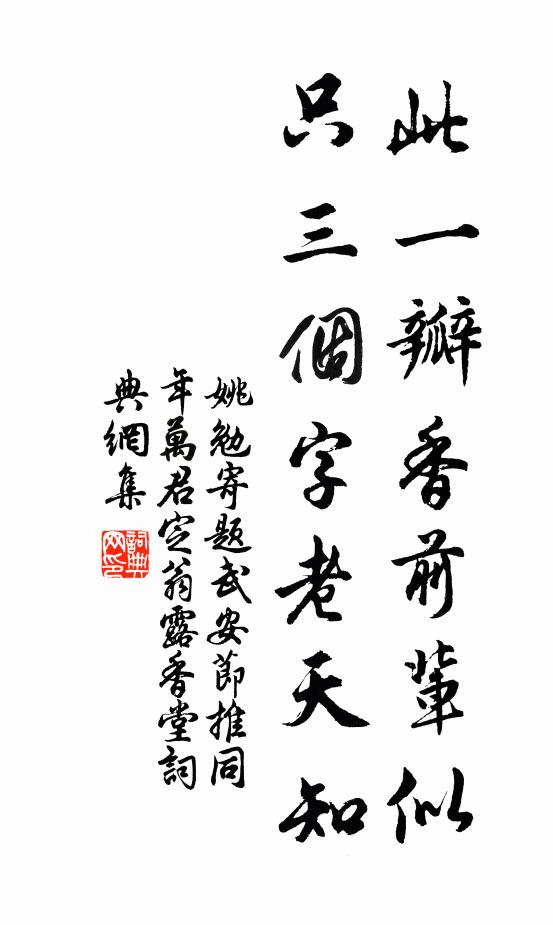 此一瓣香前輩似
只三個字老天知
姚勉寄題武安節推同
年萬君定翁露香堂詞
典網集
詞典
网印